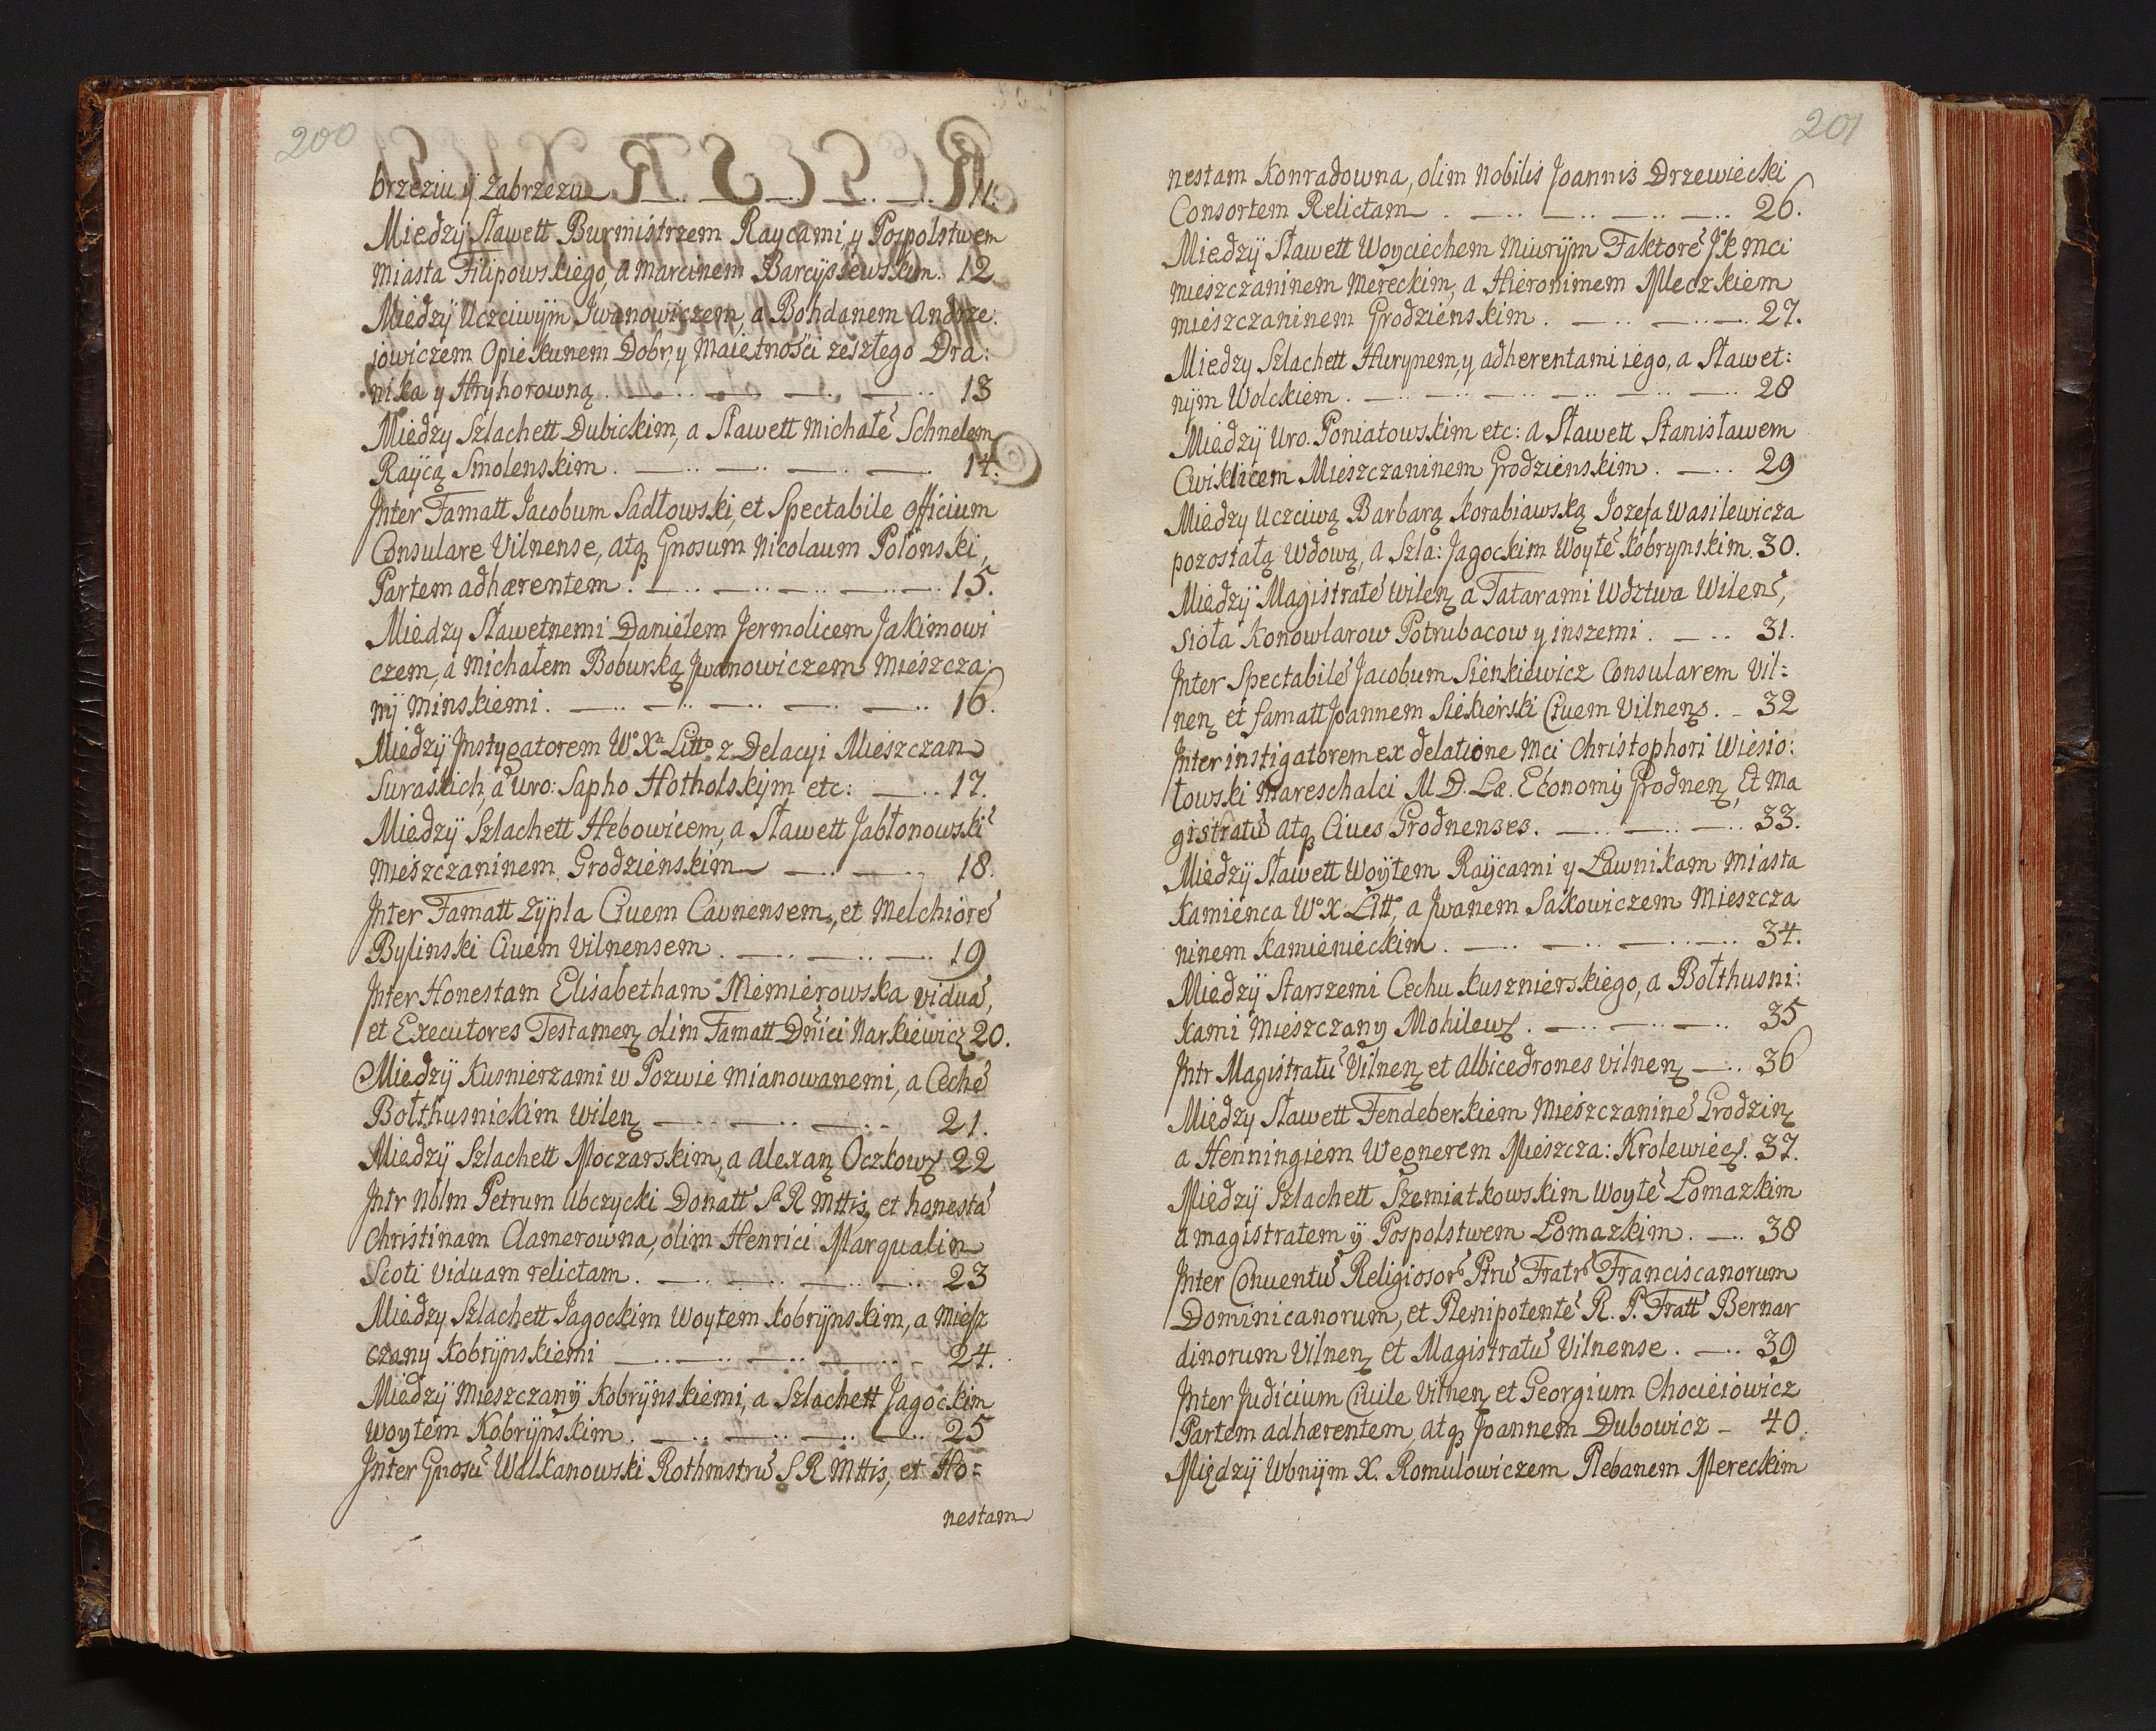 200
brzeziu ÿ Zabrzezu 11.
Miedzÿ Sławett Burmistrzem Raycami, y Pospolstwem
miasta Filipowskiego, a Marcinem Barcÿsiewskim. 12
Miedzÿ Uczciwÿm Jwanowiczem, a Bohdanem Andrze:
iowiczem Opiekunem Dobr, y Maiętnosci zeszłego Dra:
nika y Hryhorowną 13
Miedzy Szlachett Dubickim, a Sławett Michałẽ Schnelem
Raÿcą Smolenskim. 14.
Jnter Famatt Jacobum Sadłowski, et Spectabile Officium
Consulare Vilnense, atq₃ Gnosum Nicolaum Polonski,
Partem adhærentem. 15.
Miedzy Sławetnemi Danielem Jermolicem Jakimowi
czem, a Michałem Boburką Jwanowiczem Mieszcza:
nÿ Minskiemi. 16.
Miedzÿ Jnstygatorem Wº Xª Littº z Delacyi Mieszczan
Suraskich, a Uro: Sapho Hotholskÿm etc: 17.
Miedzÿ Szlachett Hebowicem, a Sławett Jabłonowskĩ
Mieszczaninem Grodzienskim 18.
Jnter Famatt Zÿpla Ciuem Caunensem, et Melchiorẽ
Bylinski Ciuem Vilnensem. 19
Jnter Honestam Elisabetham Niemierowska viduã,
et Executores Testamenʒ olim Famatt Dñici Narkiewicz 20.
Miedzÿ Kusnierzami w Pozwie mianowanemi, a Cechẽ
Bołthusnickim Wilenʒ 21.
Miedzÿ Szlachett Moczarskim, a Alexanʒ Oczkowʒ 22
Jntr Nblm Petrum Ubczycki Donatt S R Mttis, et honestã
Christinam Clamerowna, olim Henrici Marqualin
Scoti Viduam relictam. 23
Miedzy Szlachett Jagockim Woytem Kobrÿnskim, a Miesz
czany Kobrÿnskiemi 24.
Miedzÿ Mieszczanÿ Kobrÿnskiemi, a Szlachett Jagockim
Woytem Kobrÿnskim. 25
Jnter Gnosũ Walkanowski Rothmstrũ S R Mttis, et Ho=
nestam
201
nestam Konradowna, olim Nobilis Joannis Drzewiecki
Consortem Relictam. 26.
Miedzÿ Sławett Woyciechem Miurÿm Faktorẽ JK Mci
mieszczaninem Mereckim, a Hieronimem Meczkiem
mieszczaninem Grodzienskim. 27.
Miedzy Szlachett Hurynem, y adherentami iego, a Sławet:
nÿm Wolckiem. 28
Miedzÿ Uro. Poniatowskim etc: a Sławett Stanisławem
Cwiklicem Mieszczaninem Grodzienskim. 29
Miedzy Uczciwą Barbarą Korabiawską Jozefa Wasilewicza
pozostałą Wdową, a Szla: Jagockim Woytẽ Kobrynskim. 30.
Miedzÿ Magistratẽ Wilenʒ a Tatarami Wdztwa Wileñ,
Sioła Konowlarow Potrubacow y inszemi. 31.
Jnter Spectabilẽ Jacobum Sienkiewicz Consularem Vil=
nenʒ et famatt Joannem Siekierski Ciuem Vilnenʒ. 32
Jnter instigatorem ex delatione Mci Christophori Wiesio:
łowski Mareschalci M. D. Læ. Economÿ Grodnenʒ, Et Ma
gistratũ atq₃ Ciues Grodnenses. 33.
Miedzÿ Sławett Woÿtem Raÿcami y Ławnikam Miasta
Kamienca Wº X Litt, a Jwanem Sakowiczem Mieszcza
ninem Kamienieckim. 34.
Miedzÿ Starszemi Cechu Kusznierskiego, a Bołthusni:
kami Mieszczany Mohilewʒ. 35
Jntr Magistratũ Vilnenʒ et Albicedrones Vilnenʒ 36
Miedzy Sławett Fendeberkiem Mieszczaninẽ Grodzinʒ
a Henningiem Wegnerem Mieszcza: Krolewiecʒ. 37.
Miedzÿ Szlachett Szemiatkowskim Woytẽ Łomazkim
a magistratem ÿ Pospolstwem Łomazkim. 38
Jnter Conuentũ Religiosor̃ Ptrũ Fratr̃ Franciscanorum
Dominicanorum, et Plenipotentẽ R. P. Fratt Bernar
dinorum Vilnenʒ et Magistratũ Vilnense. 39
Jnter Judicium Ciuile Vilnenʒ et Georgium Chocieiowicz
Partem adhærentem, atq₃ Joannem Dubowicz 40.
Międzÿ Wbnÿm X. Romulowiczem Plebanem Mereckim